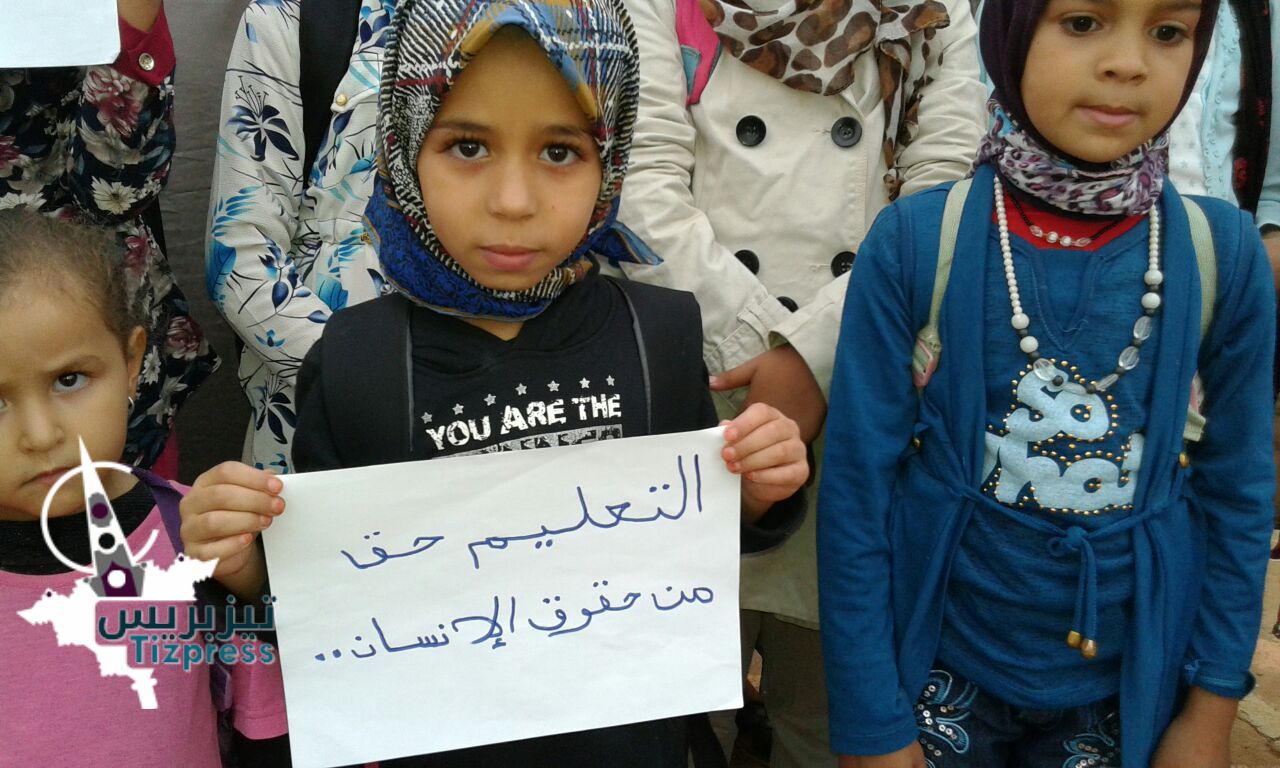 YOU ARE THE
التعليم حق
من حقوق الإنسان..
تيزبريس
Tizpress